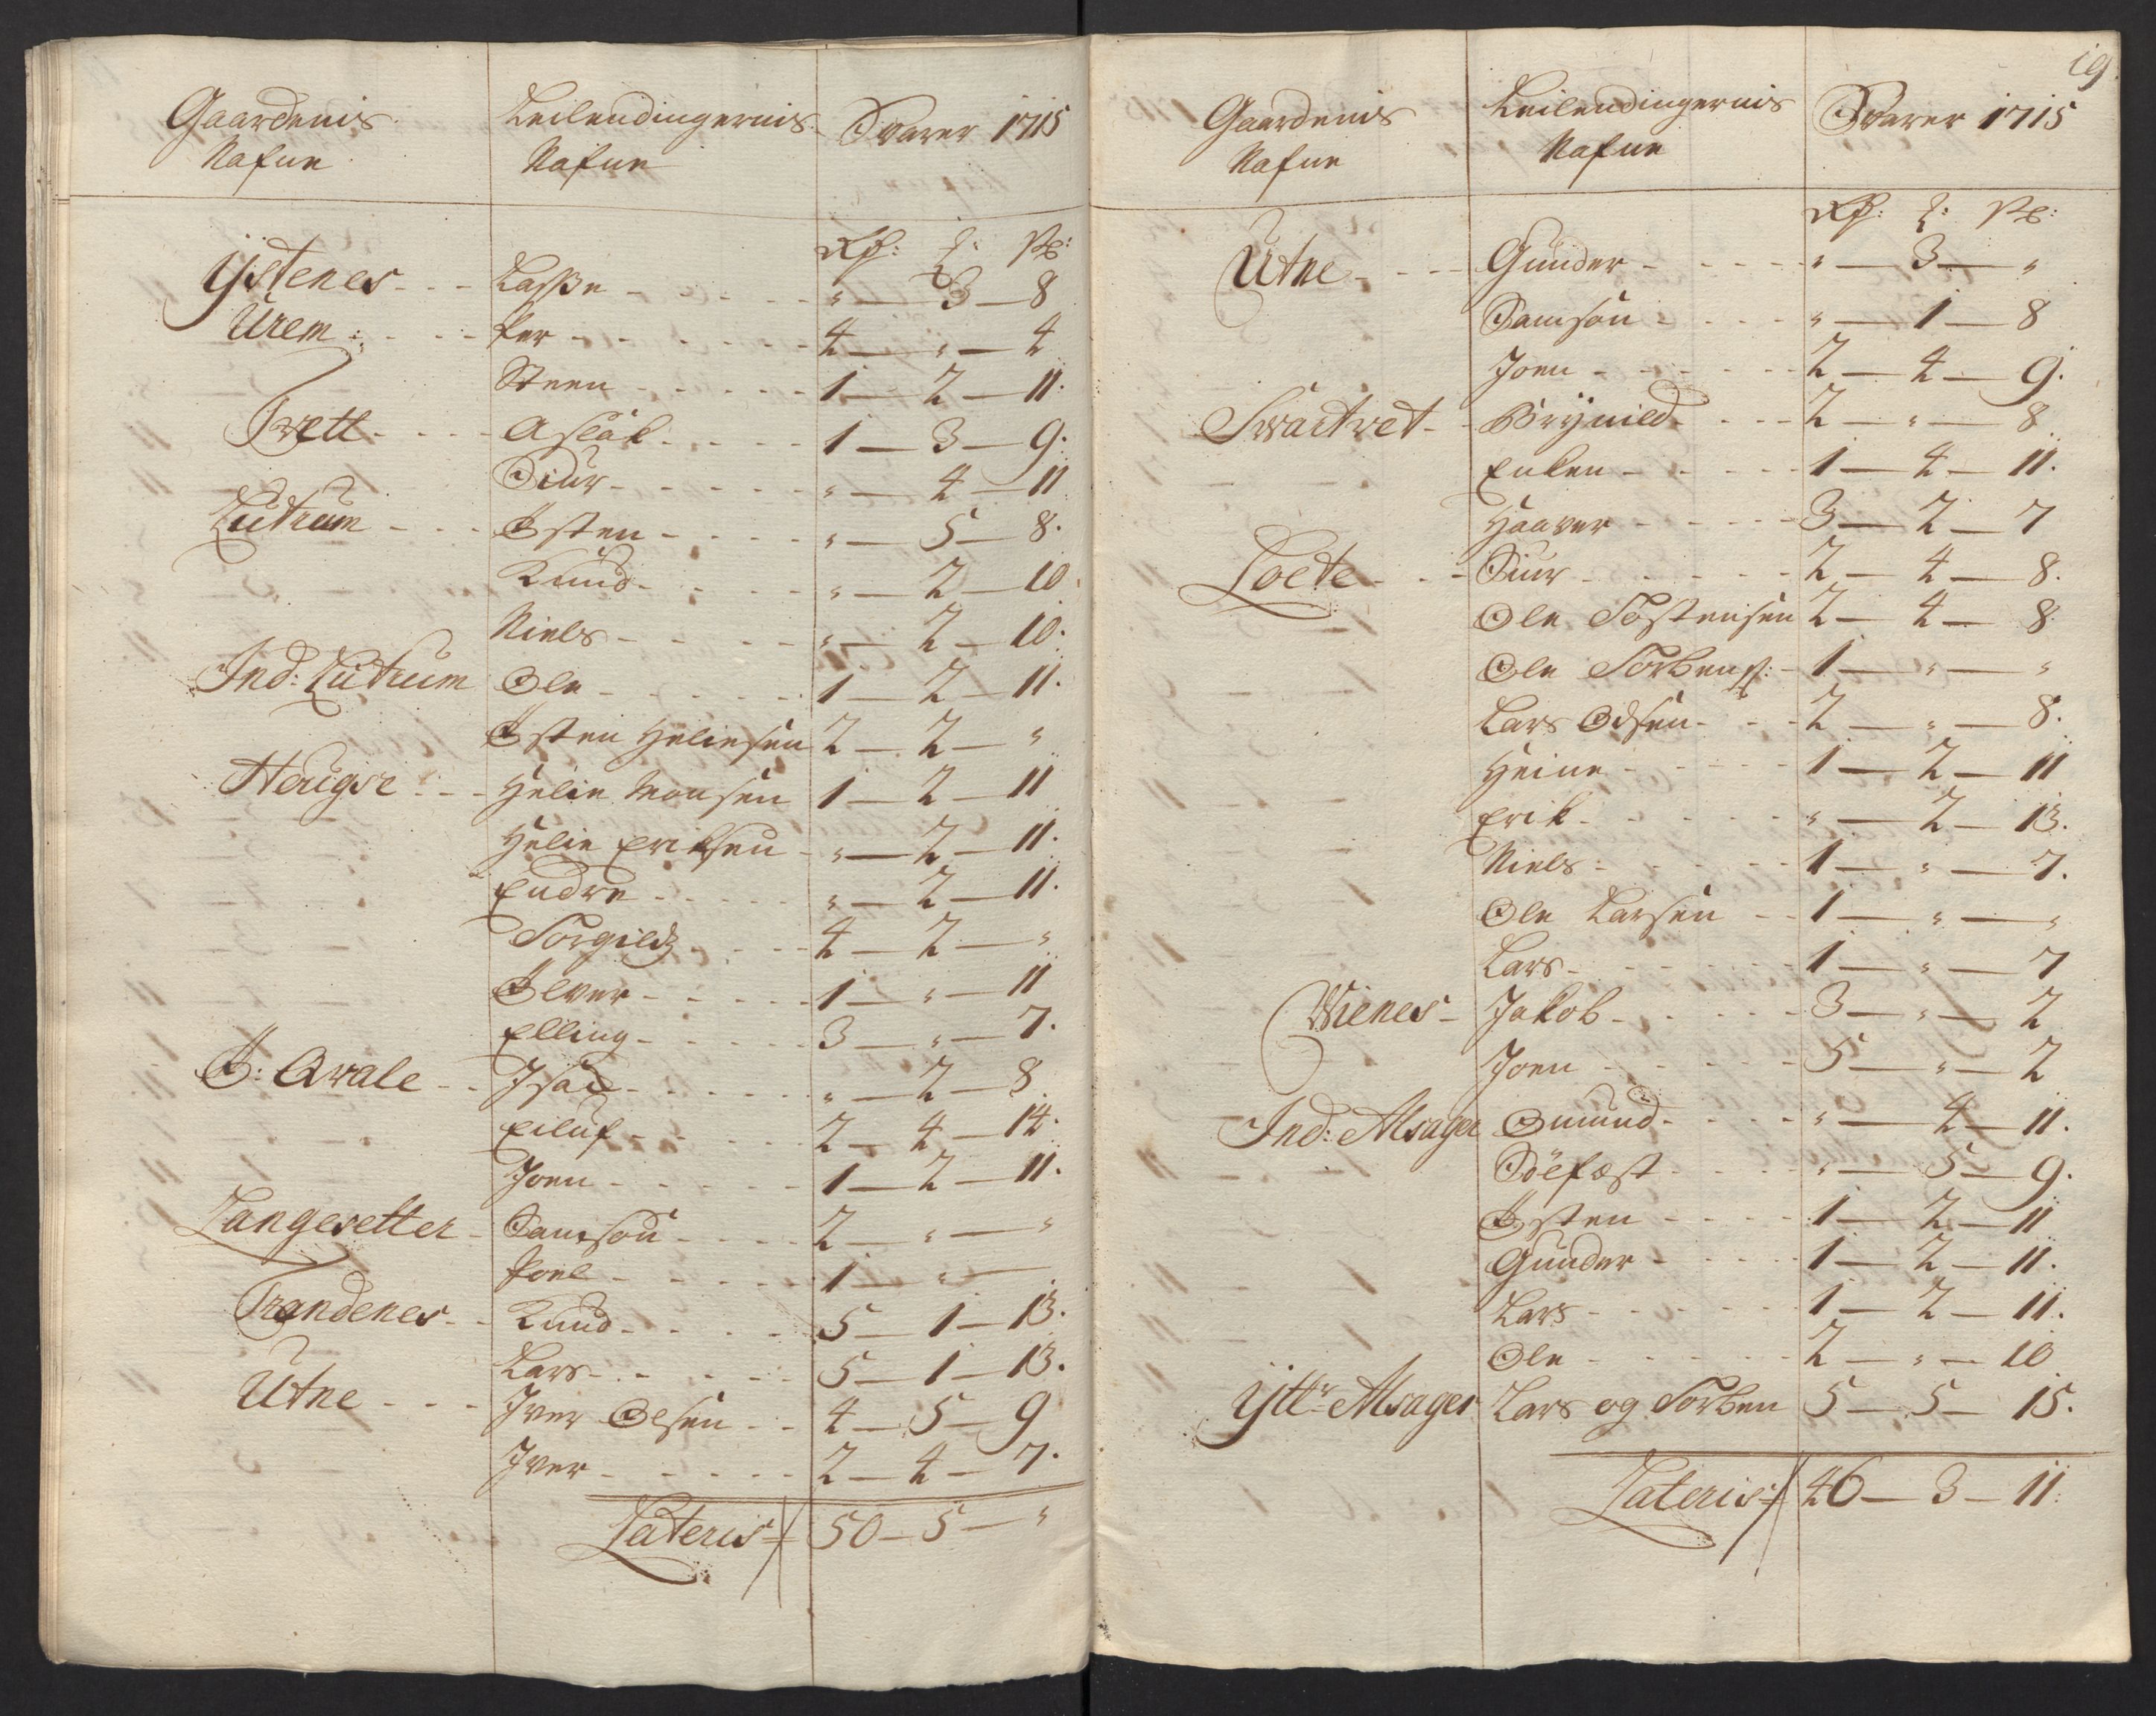 Gaardenis Leilendingernis Svarer 1715
Nafne Nafne
Rdr: ȝ: sk:
Ystenes - - - Lasse - - - - - " — 3 — 8
Urem : - - - Per - - - - - - 4 — " — 4
Steen - - - - - 1 — 2 — 11.
Tvett - - - - Aslak - - - - - 1 — 3 — 9.
Siur - - - - - " — 4 — 11
Lutrum - - - Østen - - - - " — 5 — 8.
Knud - - - - " — 2 — 10.
Niels - - - - " — 2 — 10.
Ind: Lutrum Ole - - - - - 1 — 2 — 11.
Østen Heliesen 2 — 2 — "
Hougse - - - Helie Monsen 1 — 2 — 11
Helie Eriksen - " — 2 — 11.
Endre - - - - - " — 2 — 11.
Torgield - - - - 4 — 2 — "
Elver - - - - - 1 — " — 11
Elling - - - - - 3 — " — 7.
Ø: Qvale - - Isac - - - - - - " — 2 — 8
Eiluf - - - - - 2 — 4 — 14.
Joen - - - - - 1 — 2 — 11.
Langesetter - Samson - - - - 2 — " — "
Poel - - - - - 1 — " —
Trandenes - - Knud - - - - 5 — 1 — 13.
Lars - - - - - 5 — 1 — 13.
Utne - - - Iver Olsen - - 4 — 5 — 9
Iver - - - - - 2 — 4 — 7.
Lateris 50 — 5 — "
19.
Gaardenis Leilendingernis Svarer 1715
Nafne Nafne
Rdr: ȝ: sk:
Utne - - - - Gunder - - - - - " — 3 — "
Samson - - - - " — 1 — 8
Joen - - - - - - 2 — 4 — 9.
Swartvet - - Brynild - - - - 2 — " — 8
Enken - - - - - 1 — 4 — 11.
Haaver - - - - - 3 — 2 — 7
Loete - - - Siur - - - - - - 2 — 4 — 8.
Ole Tostensen 2 — 4 — 8
Ole Torbens: - 1 — " — "
Lars Odsen - - - 2 — " — 8.
Heine - - - - - 1 — 2 — 11
Erik - - - - - - " — 2 — 13.
Niels - - - - - 1 — " — 7.
Ole Larsen - - 1 — " — "
Lars - - - - - - 1 — " — 7
Wienes - Jakob - - - - - 3 — " — 2
Joen - - - - - 5 — " — 2
Ind: Alsager Omund - - - - " — 4 — 11.
Söefæst - - - - " — 5 — 9.
Østen - - - - 1 — 2 — 11
Gunder - - - - 1 — 2 — 11.
Lars - - - - - 1 — 2 — 11.
Ole - - - - - 2 — " — 10
Ytt:r Alsager Lars og Torben 5 — 5 — 15.
Lateris 46 — 3 — 11: